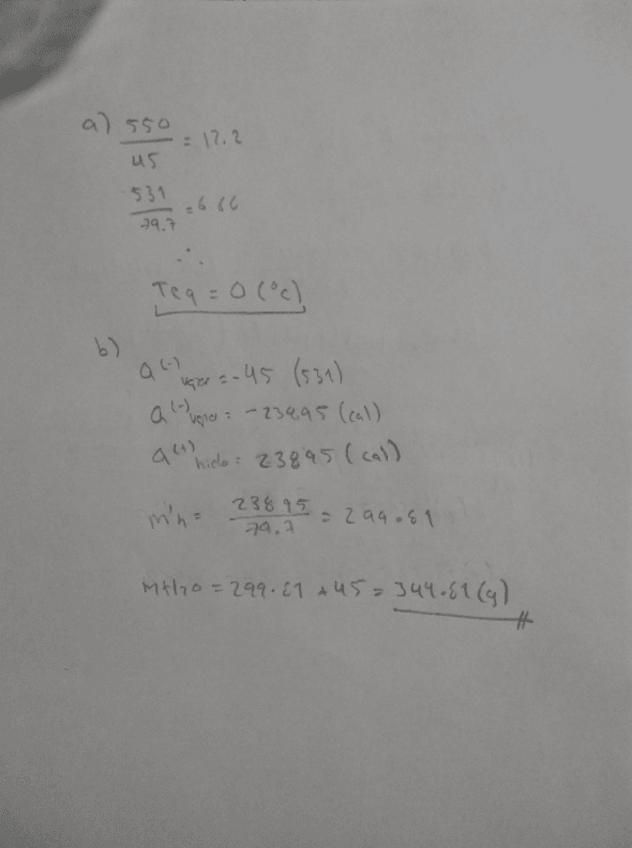 a) 550
45 = 12.2
531
79.7 = 6.66
∴
Teq = 0 (°c)
b)
Q(-) vapor = -45 (531)
Q(-) vapor = -23895 (cal)
Q(+) hielo = 23895 (cal)
m'h = 23895
79.7 = 299.81
MH2O = 299.81 + 45 = 344.81 (g)